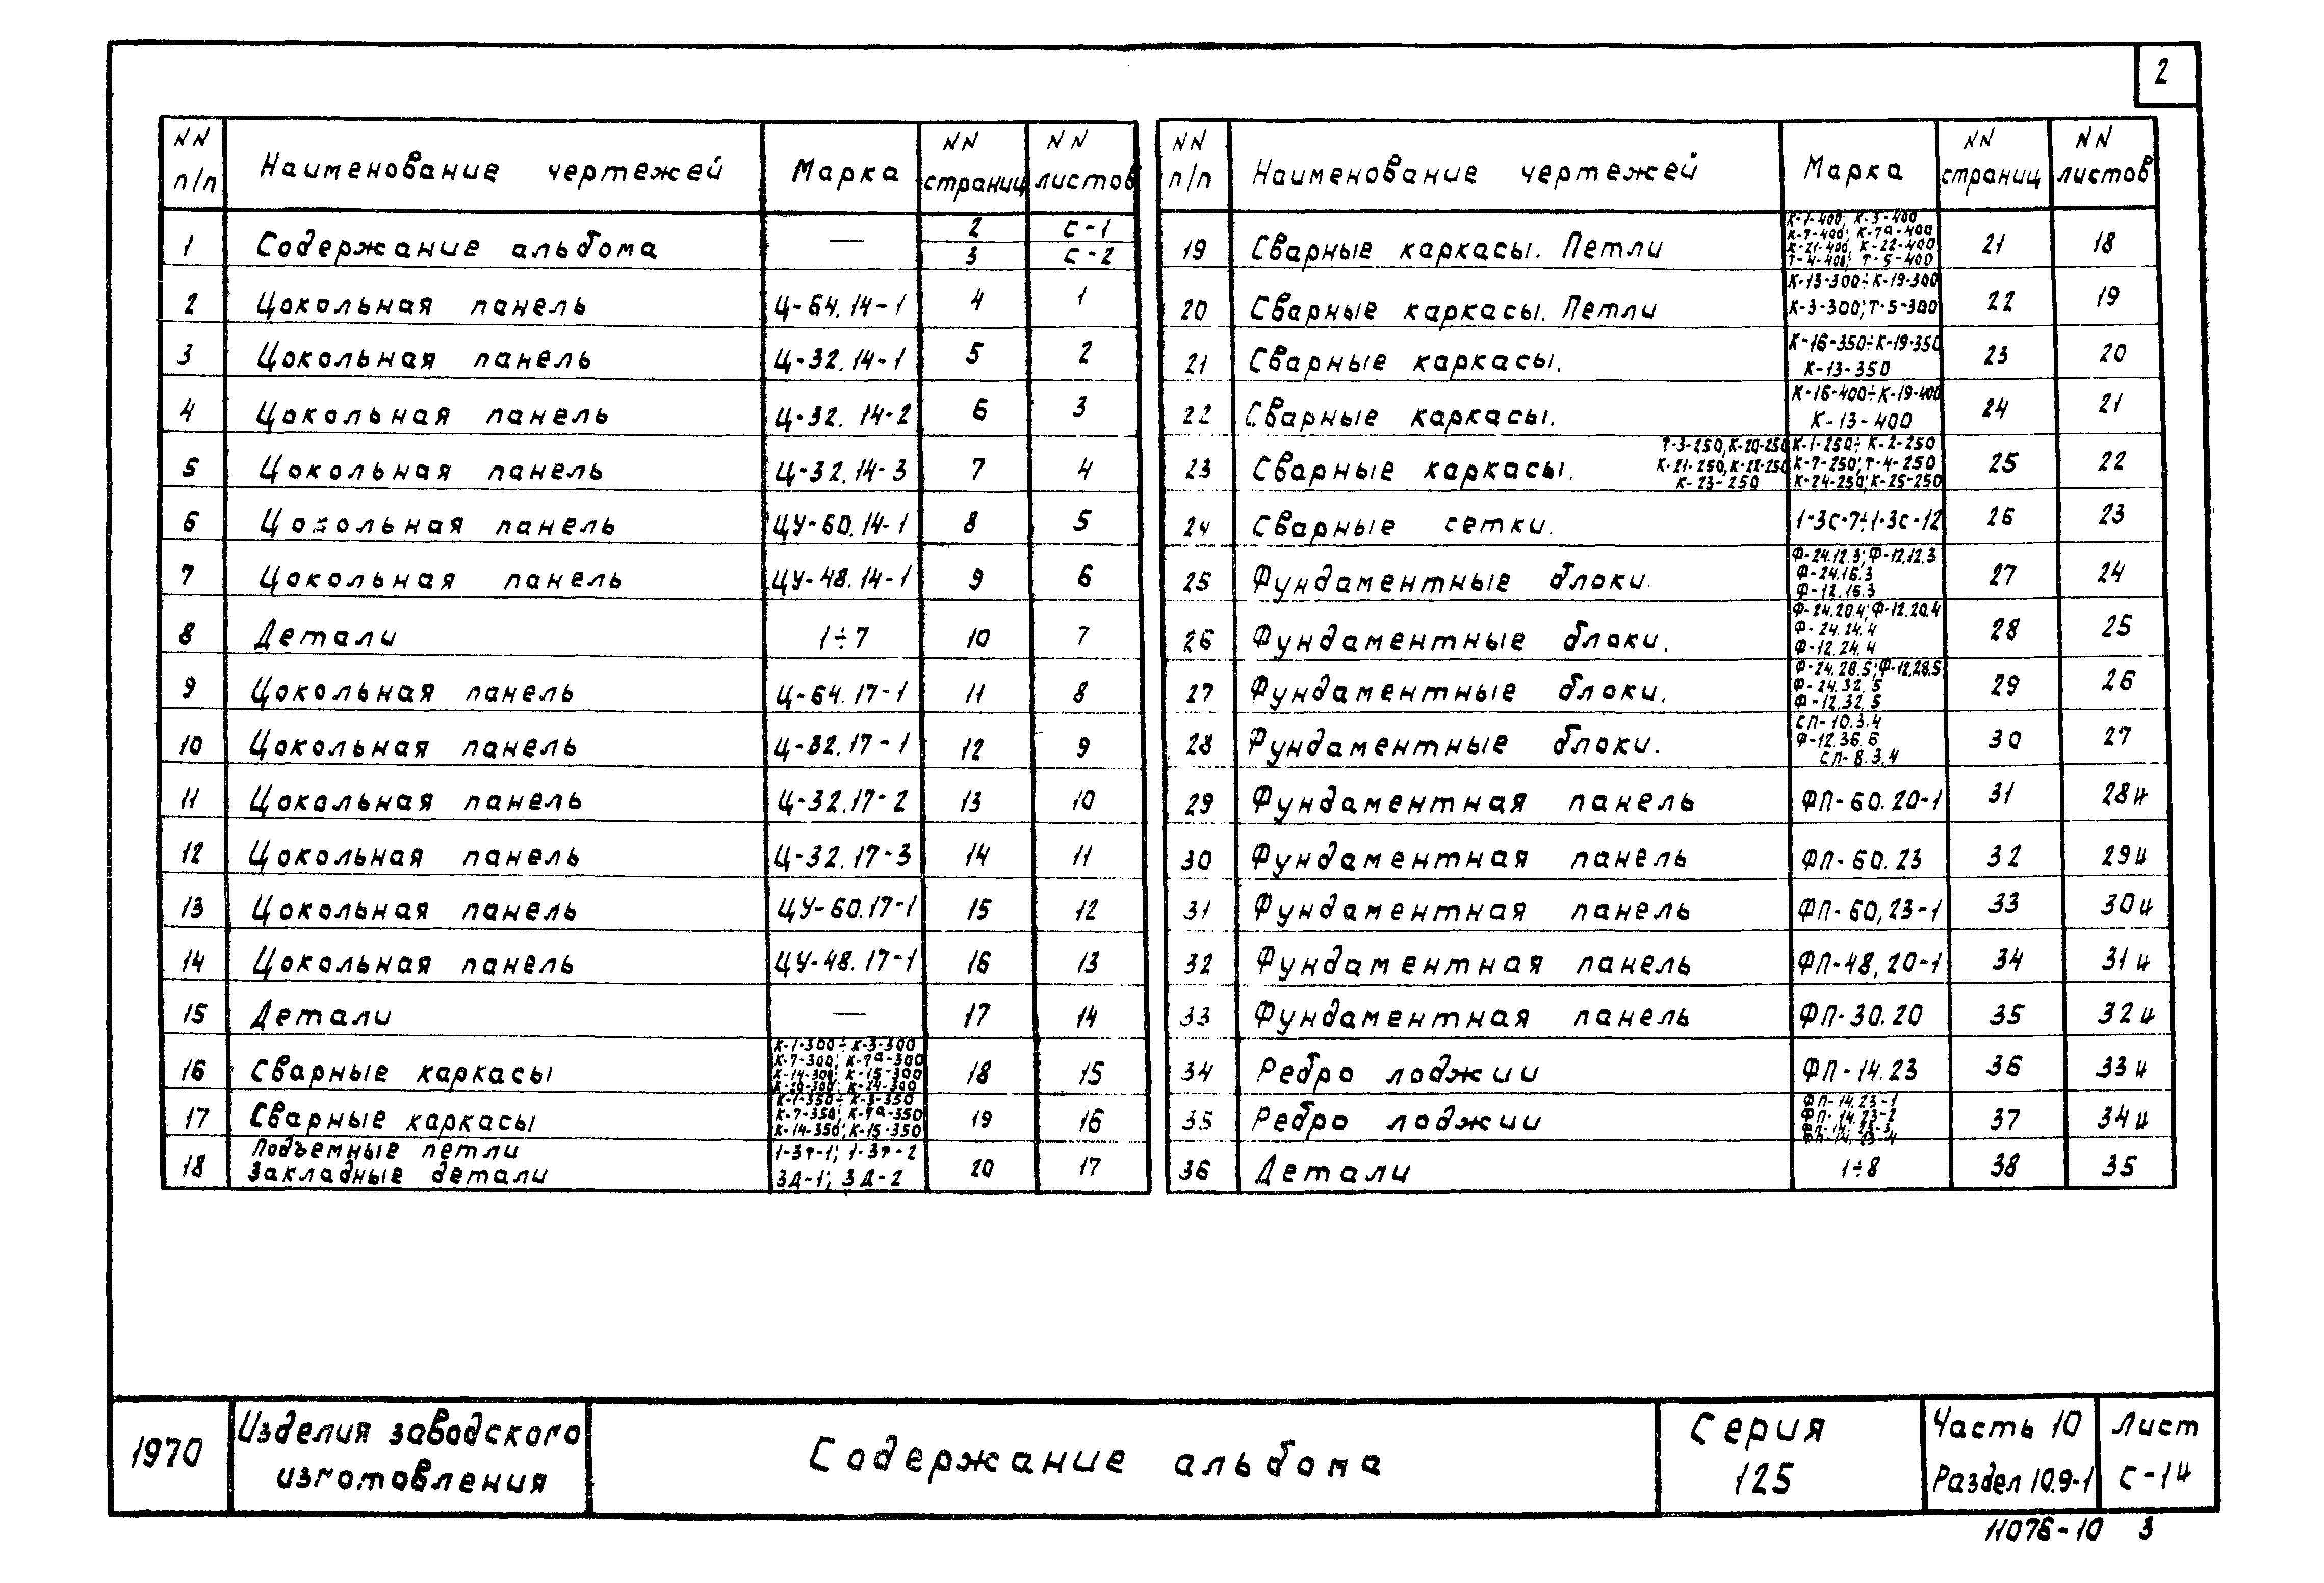 2
NN п/п Наименование чертежей Марка NN страниц NN листов
1 Содержание альбома — 2 С-1
3 С-2
2 Цокольная панель Ц-64.14-1 4 1
3 Цокольная панель Ц-32.14-1 5 2
4 Цокольная панель Ц-32.14-2 6 3
5 Цокольная панель Ц-32.14-3 7 4
6 Цокольная панель ЦУ-60.14-1 8 5
7 Цокольная панель ЦУ-48.14-1 9 6
8 Детали 1÷7 10 7
9 Цокольная панель Ц-64.17-1 11 8
10 Цокольная панель Ц-32.17-1 12 9
11 Цокольная панель Ц-32.17-2 13 10
12 Цокольная панель Ц-32.17-3 14 11
13 Цокольная панель ЦУ-60.17-1 15 12
14 Цокольная панель ЦУ-48.17-1 16 13
15 Детали — 17 14
16 Сварные каркасы К-1-300÷К-3-300
К-7-300; К-7а-300
К-14-300; К-15-300
К-20-300; К-24-300 18 15
17 Сварные каркасы К-1-350÷К-3-350
К-7-350; К-7а-350
К-14-350; К-15-350 19 16
18 Подъемные петли 1-3т-1; 1-3т-2
Закладные детали ЗД-1; ЗД-2 20 17
NN п/п Наименование чертежей Марка NN страниц NN листов
19 Сварные каркасы. Петли К-1-400; К-3-400
К-7-400; К-7а-400
К-21-400; К-22-400
Т-4-400; Т-5-400 21 18
20 Сварные каркасы. Петли К-13-300÷К-19-300
К-3-300; Т-5-300 22 19
21 Сварные каркасы. К-16-350÷К-19-350
К-13-350 23 20
22 Сварные каркасы. К-16-400÷К-19-400
К-13-400 24 21
23 Сварные каркасы. Т-3-250, К-20-250 К-1-250÷К-2-250
К-21-250, К-22-250 К-7-250; Т-4-250
К-23-250 К-24-250; К-25-250 25 22
24 Сварные сетки. 1-3с-7÷1-3с-12 26 23
25 Фундаментные блоки. Ф-24.12.3; Ф-12.12.3
Ф-24.16.3
Ф-12.16.3 27 24
26 Фундаментные блоки. Ф-24.20.4; Ф-12.20.4
Ф-24.24.4
Ф-12.24.4 28 25
27 Фундаментные блоки. Ф-24.28.5; Ф-12.28.5
Ф-24.32.5
Ф-12.32.5 29 26
28 Фундаментные блоки. СП-10.3.4
Ф-12.36.6
СП-8.3.4 30 27
29 Фундаментная панель ФП-60.20-1 31 28и
30 Фундаментная панель ФП-60.23 32 29и
31 Фундаментная панель ФП-60,23-1 33 30и
32 Фундаментная панель ФП-48,20-1 34 31и
33 Фундаментная панель ФП-30.20 35 32и
34 Ребро лоджии ФП-14.23 36 33и
35 Ребро лоджии ФП-14.23-1
ФП-14.23-2
ФП-14.23-3
ФП-14.23-4 37 34и
36 Детали 1÷8 38 35
1970
Изделия заводского
изготовления
Содержание альбома
Серия
125
Часть 10
Раздел 10.9-1
Лист
С-1и
11076-10 3